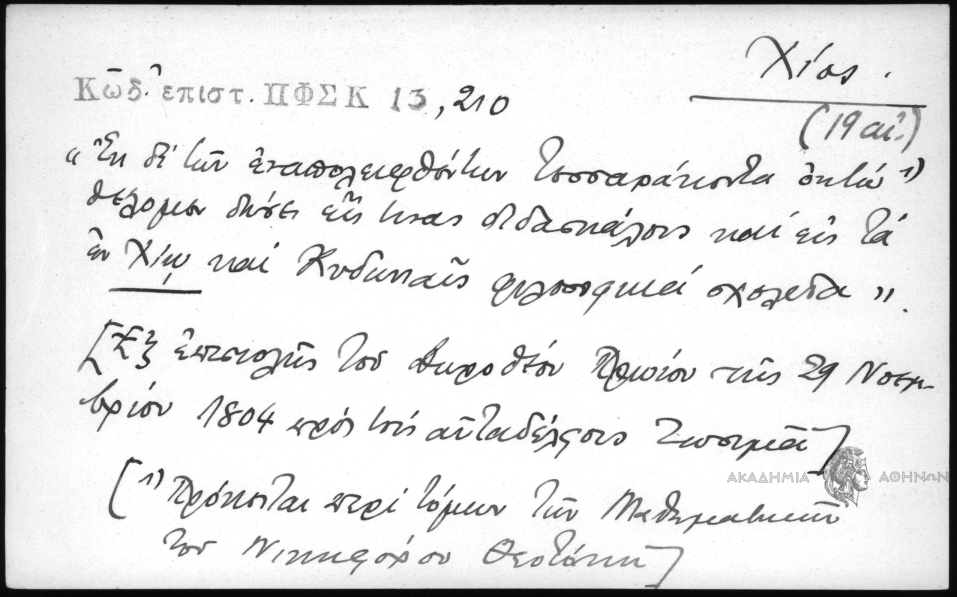 Χίος.
(19 αἰ.)
Κῶδ. ἐπιστ. ΠΦΣΚ 13, 210
"Ἐκ δὲ τῶν ἐναπολειφθέντων τεσσαράκοντα ὀκτὼ 1)
θέλομεν δώσει εἴς τινας διδασκάλους καὶ εἰς τὰ
ἐν Χίῳ καὶ Κυδωνίαις φιλοσοφικὰ σχολεῖα".
[Ἐξ ἐπιστολῆς τοῦ Δωροθέου Πρωίου τῆς 29 Νοεμ-
βρίου 1804 πρὸς τοὺς αὐταδέλφους Ζωσιμᾶ]
[1) Πρόκειται περὶ τόμων τῶν Μαθηματικῶν
τοῦ Νικηφόρου Θεοτόκη]
ΑΚΑΔΗΜΙΑ ΑΘΗΝΩΝ